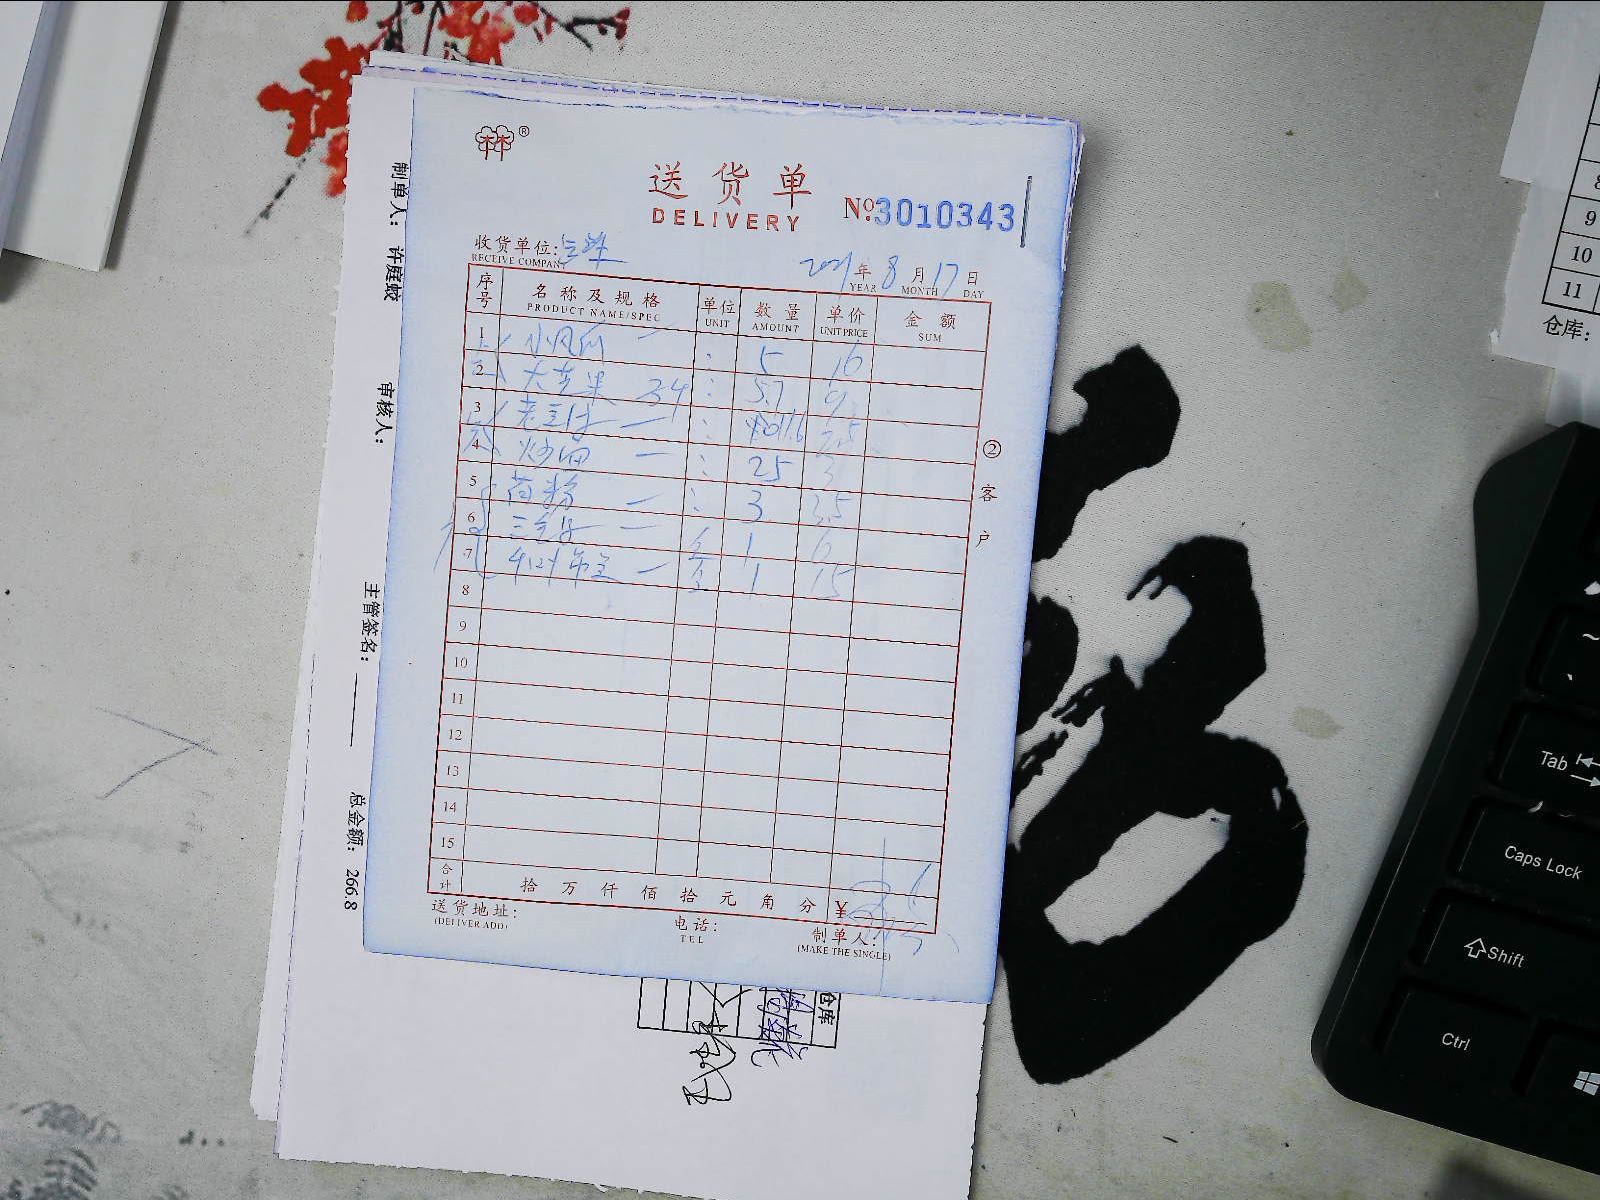 ®
送货单
DELIVERY
№:3010343
收货单位:
RECEIVE COMPANY
2021年8月17日
YEAR MONTH DAY
序号 名称及规格 单位 数量 单价 金额
PRODUCT NAME/SPEC UNIT AMOUNT UNIT PRICE SUM
1 小凤爪 一 : 5 16
2 大芒果 34 : 5.7 9
3 老豆付 一 : 7.5
4 炒面 一 : 25 3
5 苕粉 一 : 3 3.5
6 一 1 6
7 一 1 15
8
9
10
11
12
13
14
15
合计 拾 万 仟 佰 拾 元 角 分 ¥
送货地址:
(DELIVER ADD)
电话:
TEL
制单人:
(MAKE THE SINGLE)
②客户
制单人: 许庭蛟
审核人:
主管签名:
总金额: 266.8
仓库
8
9
10
11
仓库:
~
Tab
Caps Lock
Shift
Ctrl